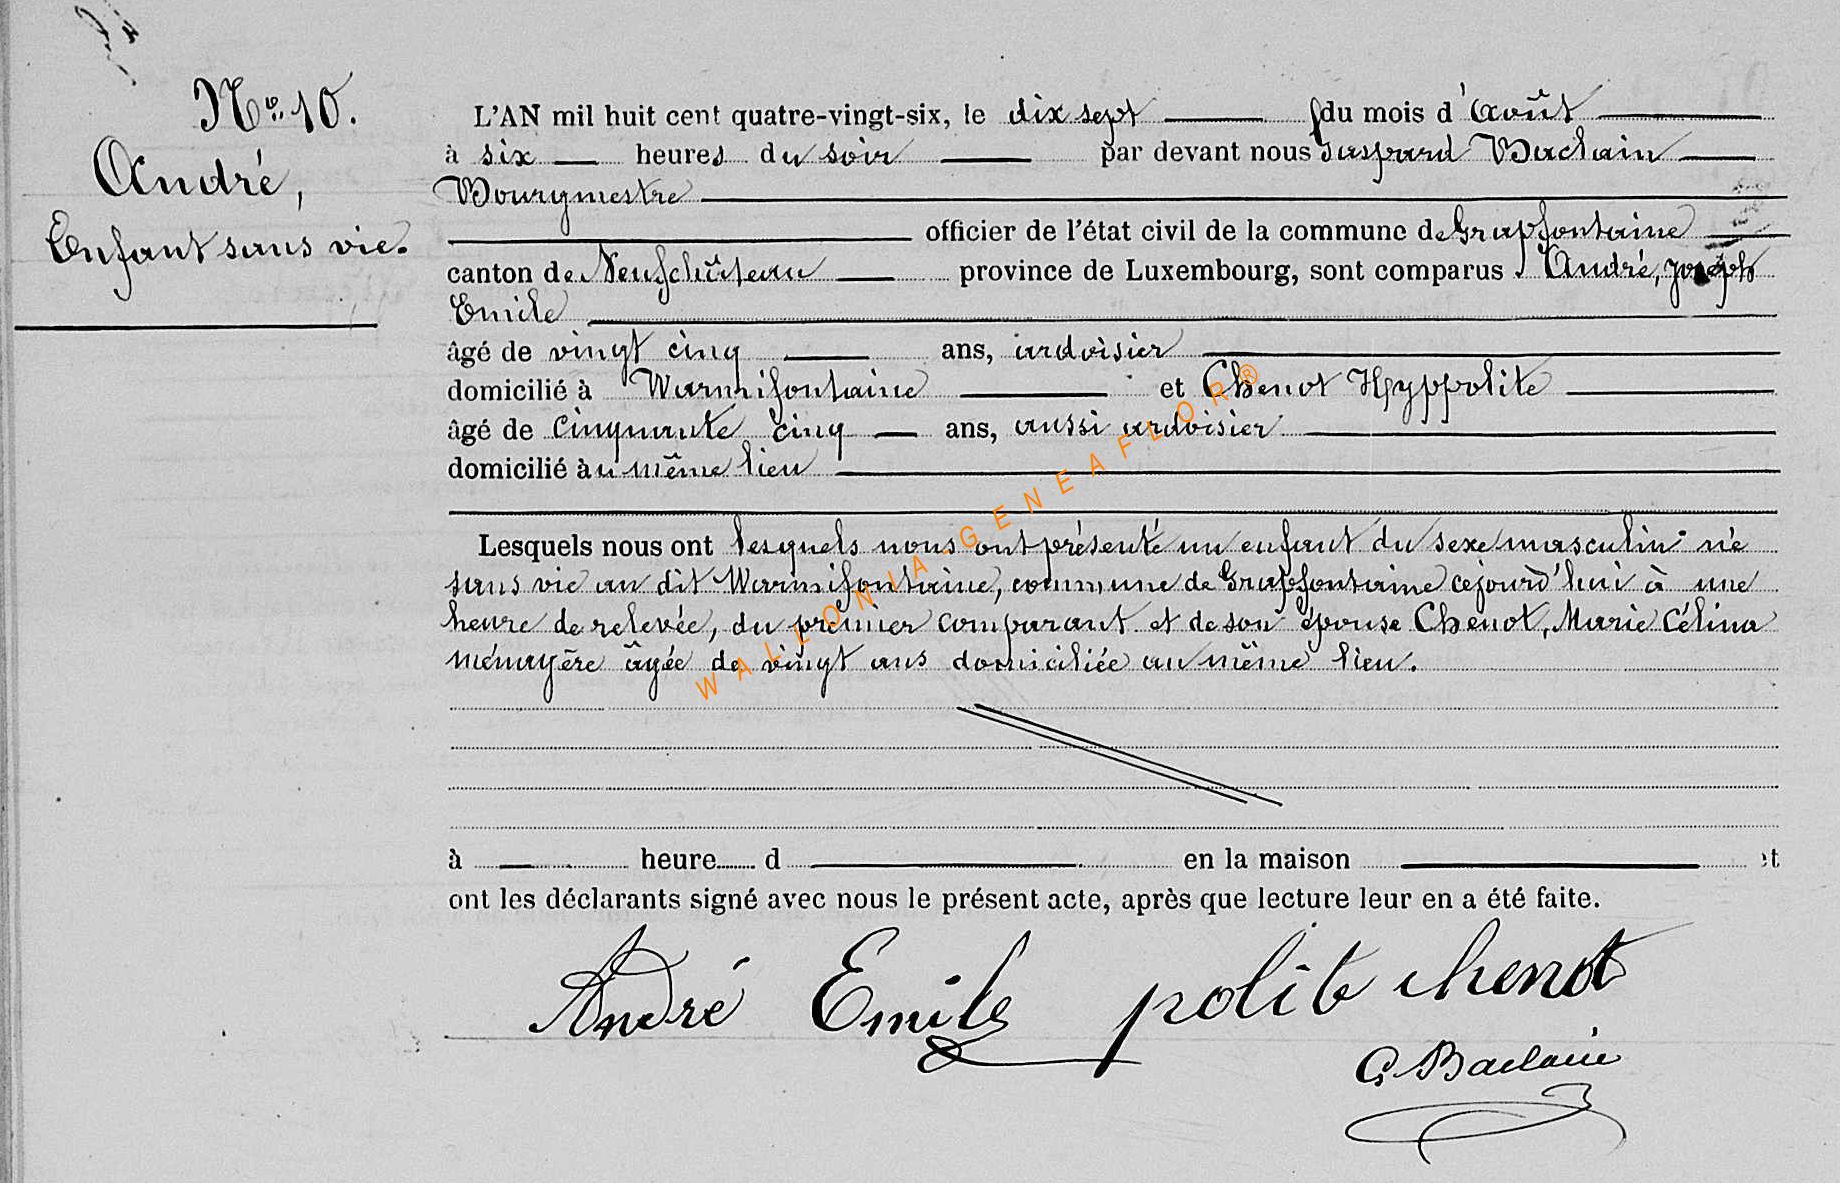 No. 10.
André,
Enfant sans vie.
L'AN mil huit cent quatre-vingt-six, le dix sept du mois d'Août
à six heures du soir par devant nous Gaspard Baclain
Bourgmestre
officier de l'état civil de la commune de Grapfontaine
canton de Neufchâteau province de Luxembourg, sont comparus André, Joseph
Emile
âgé de vingt cinq ans, ardoisier
domicilié à Warmifontaine et Chenot Hyppolite
âgé de cinquante cinq ans, aussi ardoisier
domicilié au même lieu
Lesquels nous ont lesquels nous ont présenté un enfant du sexe masculin né
sans vie au dit Warmifontaine, commune de Grapfontaine cejourd'hui à une
heure de relevée, du premier comparant et de son épouse Chenot, Marie Célina
ménagère âgée de vingt ans domiciliée au même lieu.
à heure d en la maison et
ont les déclarants signé avec nous le présent acte, après que lecture leur en a été faite.
André Emile polite chenot
G. Baclain
WALLONIA GENEAFLOR®